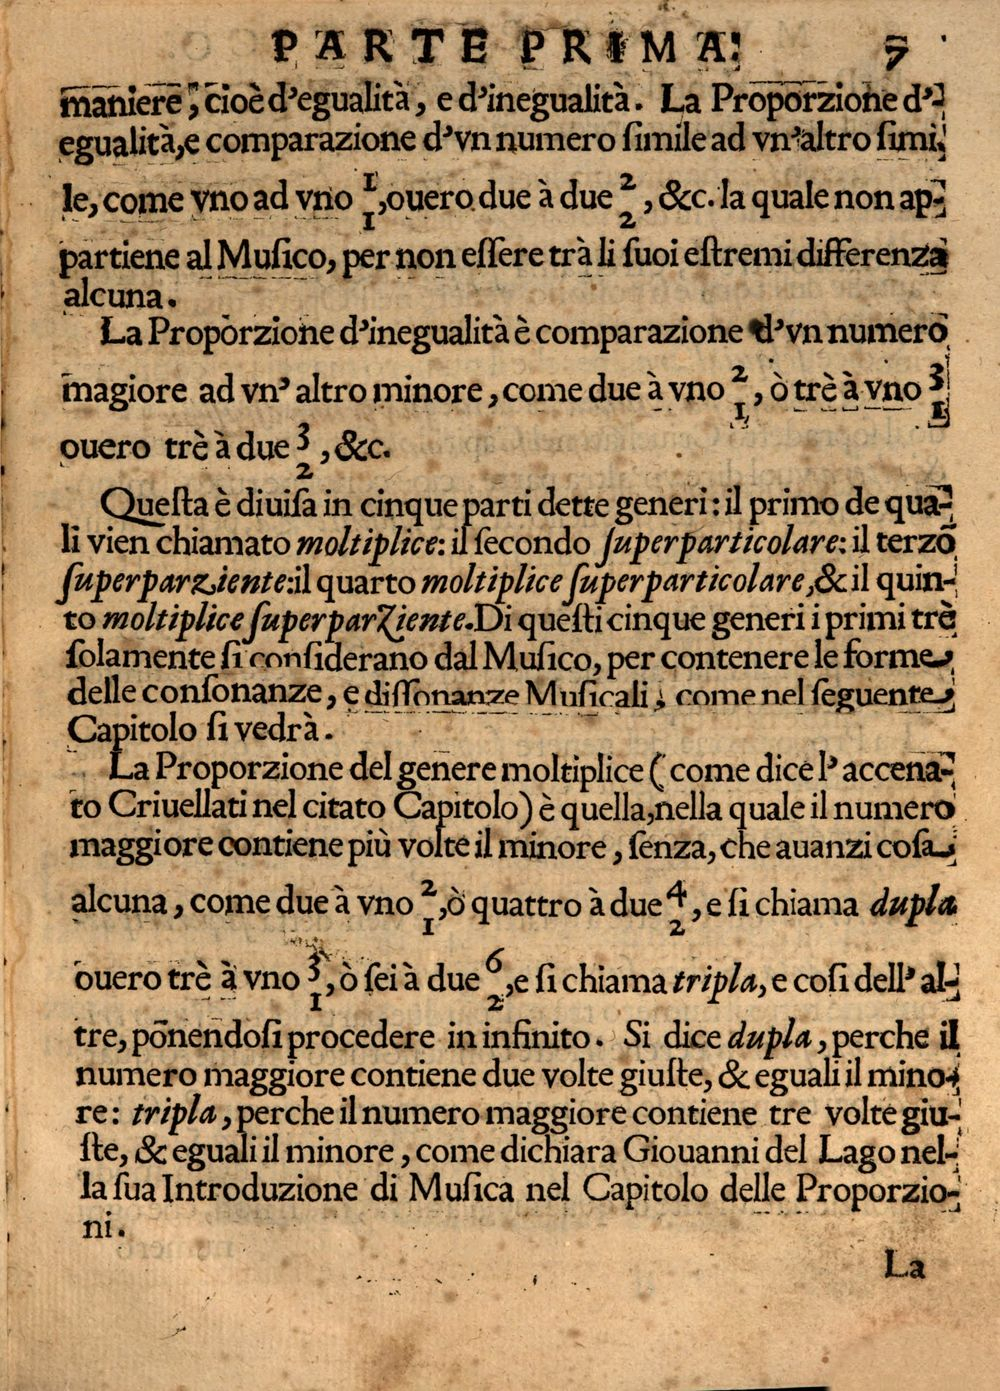 PARTE PRIMA. 7
maniere, cioè d'egualità, e d'inegualità. La Proporzione d'-
egualità, e comparazione d'vn numero ſimile ad vn'altro ſimi-
le, come vno ad vno 1/1, ouero due à due 2/2, &c. la quale non ap-
partiene al Muſico, per non eſſere trà li ſuoi eſtremi differenza
alcuna.
La Proporzione d'inegualità è comparazione d'vn numero
magiore ad vn' altro minore, come due à vno 2/1, ò trè à vno 3/1
ouero trè à due 3/2, &c.
Queſta è diuiſa in cinque parti dette generi: il primo de qua-
li vien chiamato moltiplice: il ſecondo ſuperparticolare: il terzo
ſuperparziente: il quarto moltiplice ſuperparticolare, & il quin-
to moltiplice ſuperparziente. Di queſti cinque generi i primi trè
ſolamente ſi conſiderano dal Muſico, per contenere le forme
delle conſonanze, e diſſonanze Muſicali, come nel ſeguente
Capitolo ſi vedrà.
La Proporzione del genere moltiplice (come dice l' accena-
to Criuellati nel citato Capitolo) è quella, nella quale il numero
maggiore contiene più volte il minore, ſenza, che auanzi coſa
alcuna, come due à vno 2/1, ò quattro à due 4/2, e ſi chiama dupla
ouero trè à vno 3/1, ò ſei à due 6/2, e ſi chiama tripla, e coſi dell' al-
tre, põnendoſi procedere in infinito. Si dice dupla, perche il
numero maggiore contiene due volte giuſte, & eguali il mino-
re: tripla, perche il numero maggiore contiene tre volte giu-
ſte, & eguali il minore, come dichiara Giouanni del Lago nel-
la ſua Introduzione di Muſica nel Capitolo delle Proporzio-
ni.
La